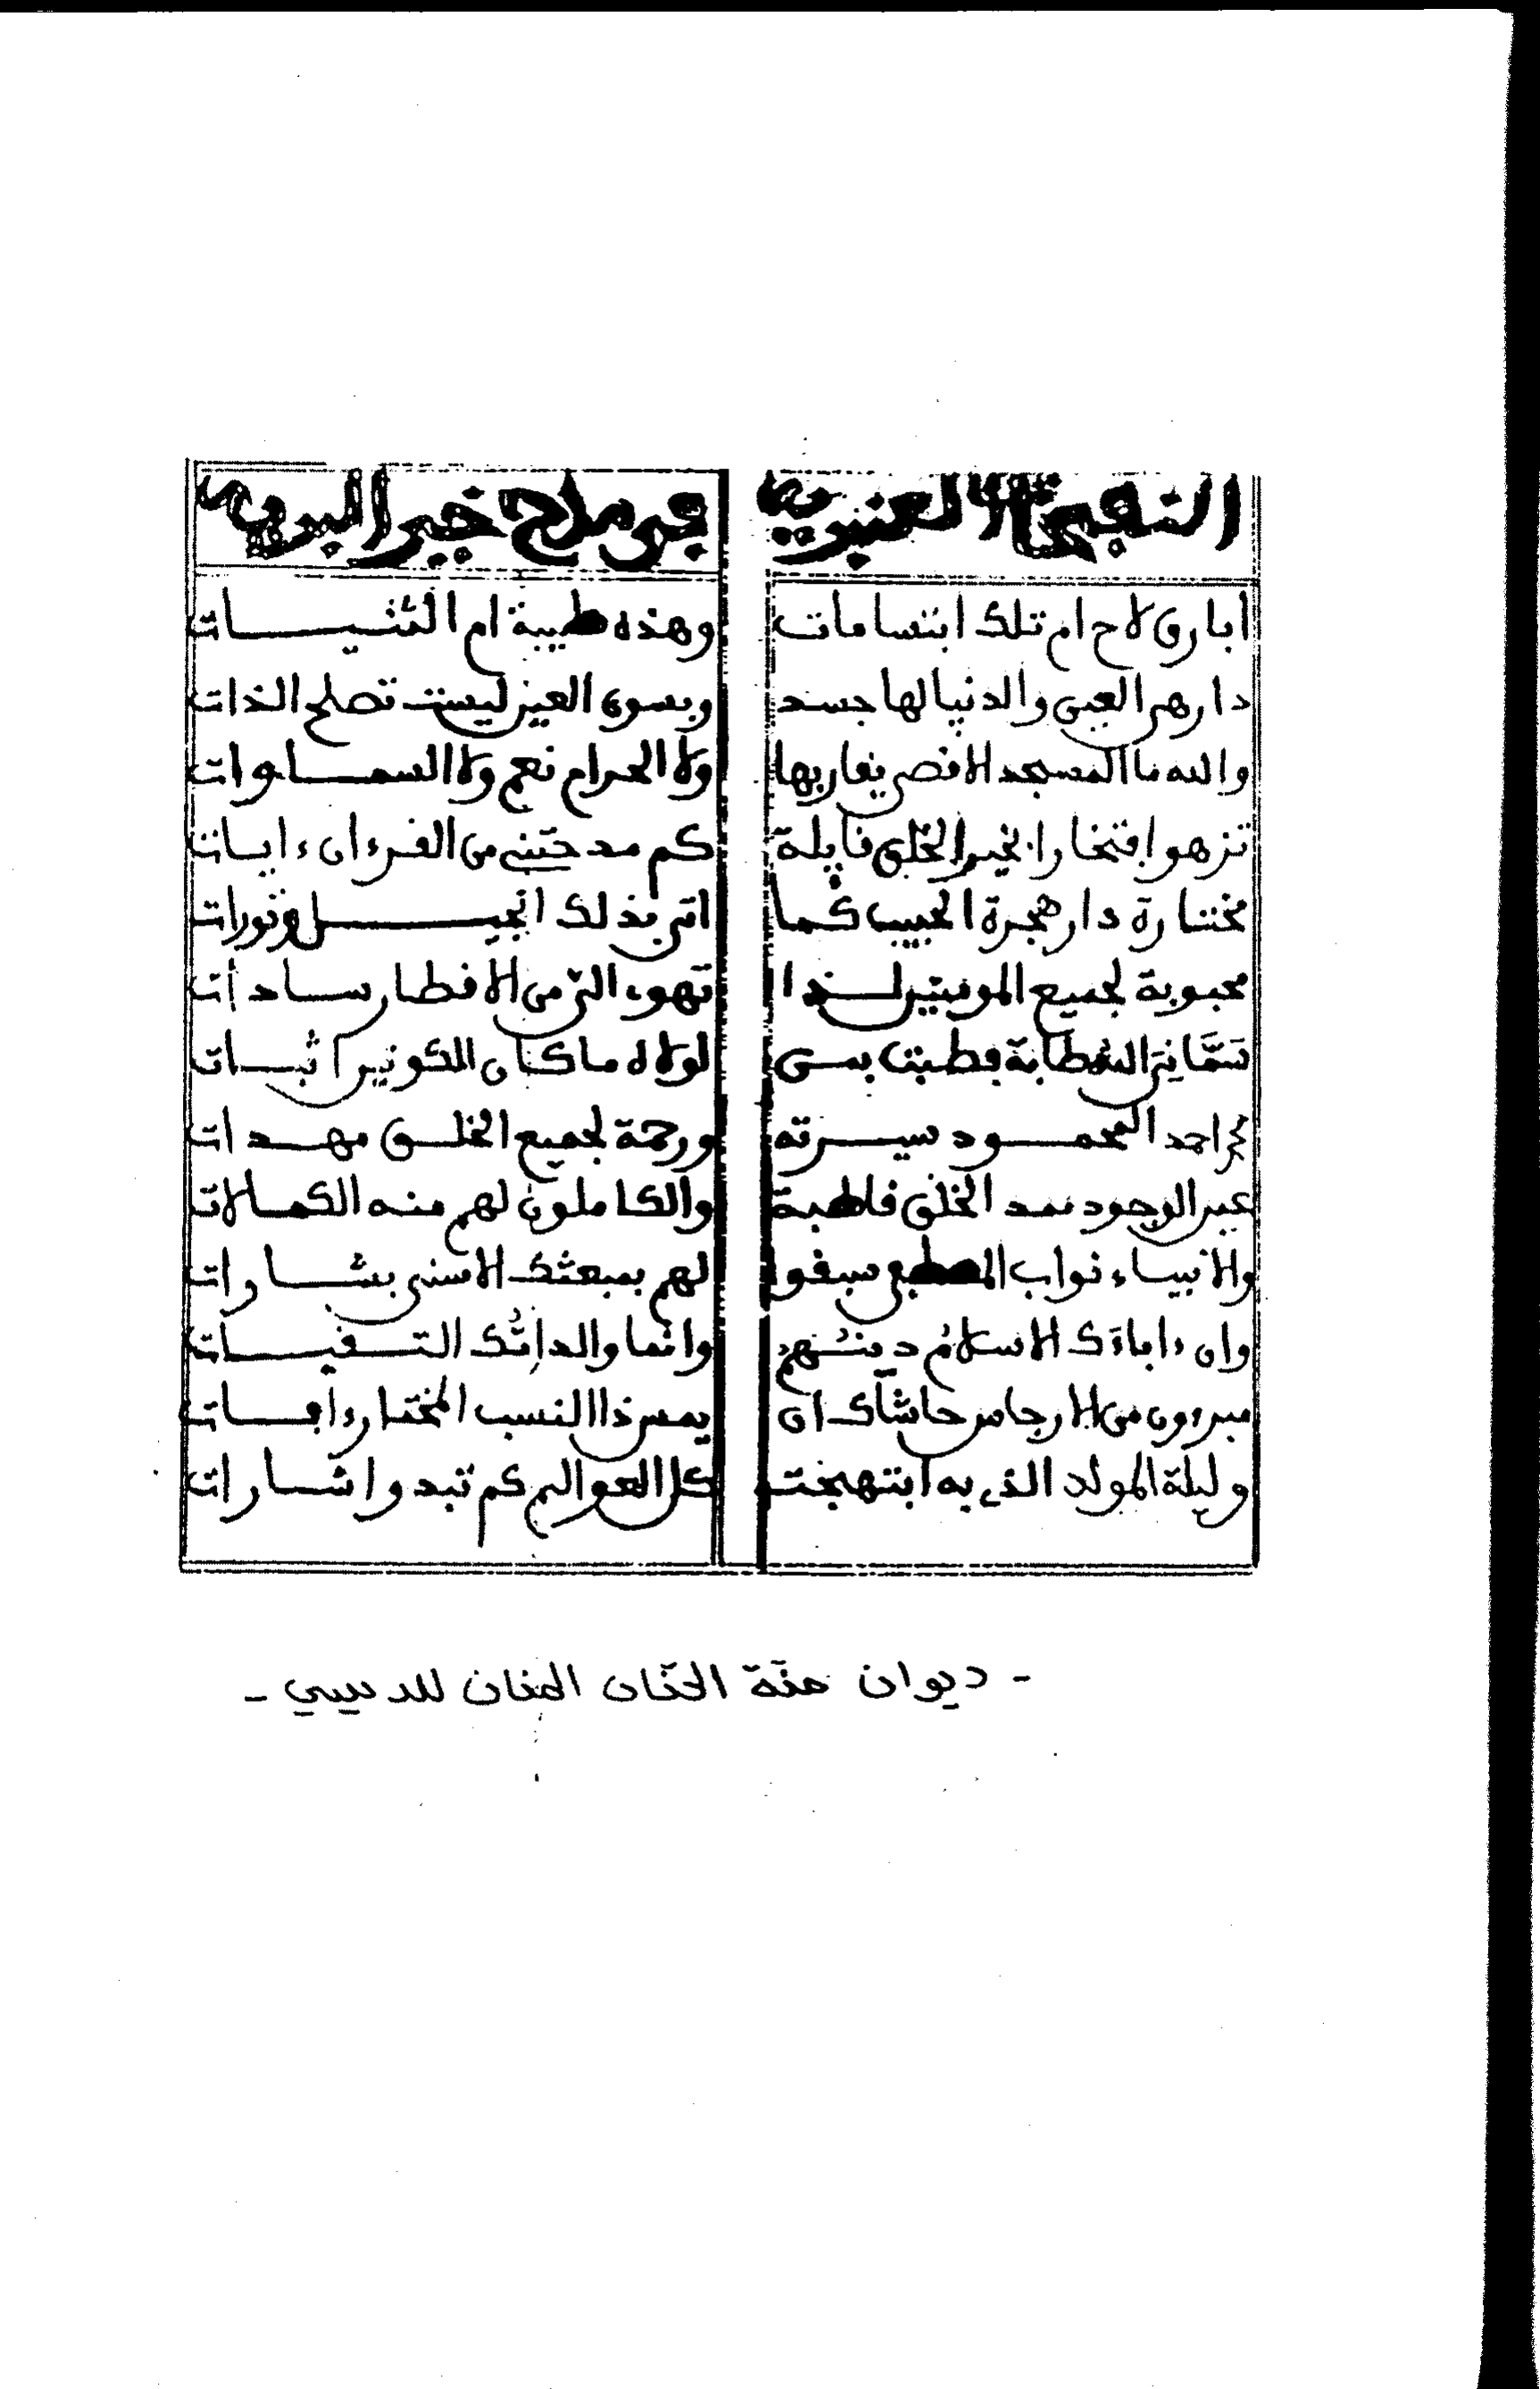 النفحة العنبرية في مدح خير البرية
ابارق لاح ام تلك ابتسامات وهذه طيبة ام الثنيات
دار هي العين والدنيا لها جسد وبسوى العين ليست تصلح الذات
والله ما المسجد الاقصى يقاربها ولا الحرام نعم ولا السماوات
تزهو افتخارا بخير الخلق قايلة كم مدحتني من القرءان ءايات
مختارة دار هجرة الحبيب كما اتى بذلك انجيل وتورات
محبوبة لجميع المومنين لذا تهوى التي من الاقطار سادات
سمانى الله طابة فطبت بمن لولاه ما كان للكونين اثبات
محمد احمد المحمود سيرته ورحمة لجميع الخلق مهدات
عين الوجود ممد الخلق قاطبة والكاملون لهم منه الكمالات
والانبياء نواب المصطفى سبقوا لهم بمبعثك الاسنى بشارات
وان ءاباءك الاسلام دينهم وانما والداتك التقيات
مبرءون من الارجاس حاشاك ان يمس ذا النسب المختار ءافات
وليلة المولد الذي به ابتهجت كل العوالم كم تبدو اشارات
- ديوان منة الحنان المنان للدسيسي -